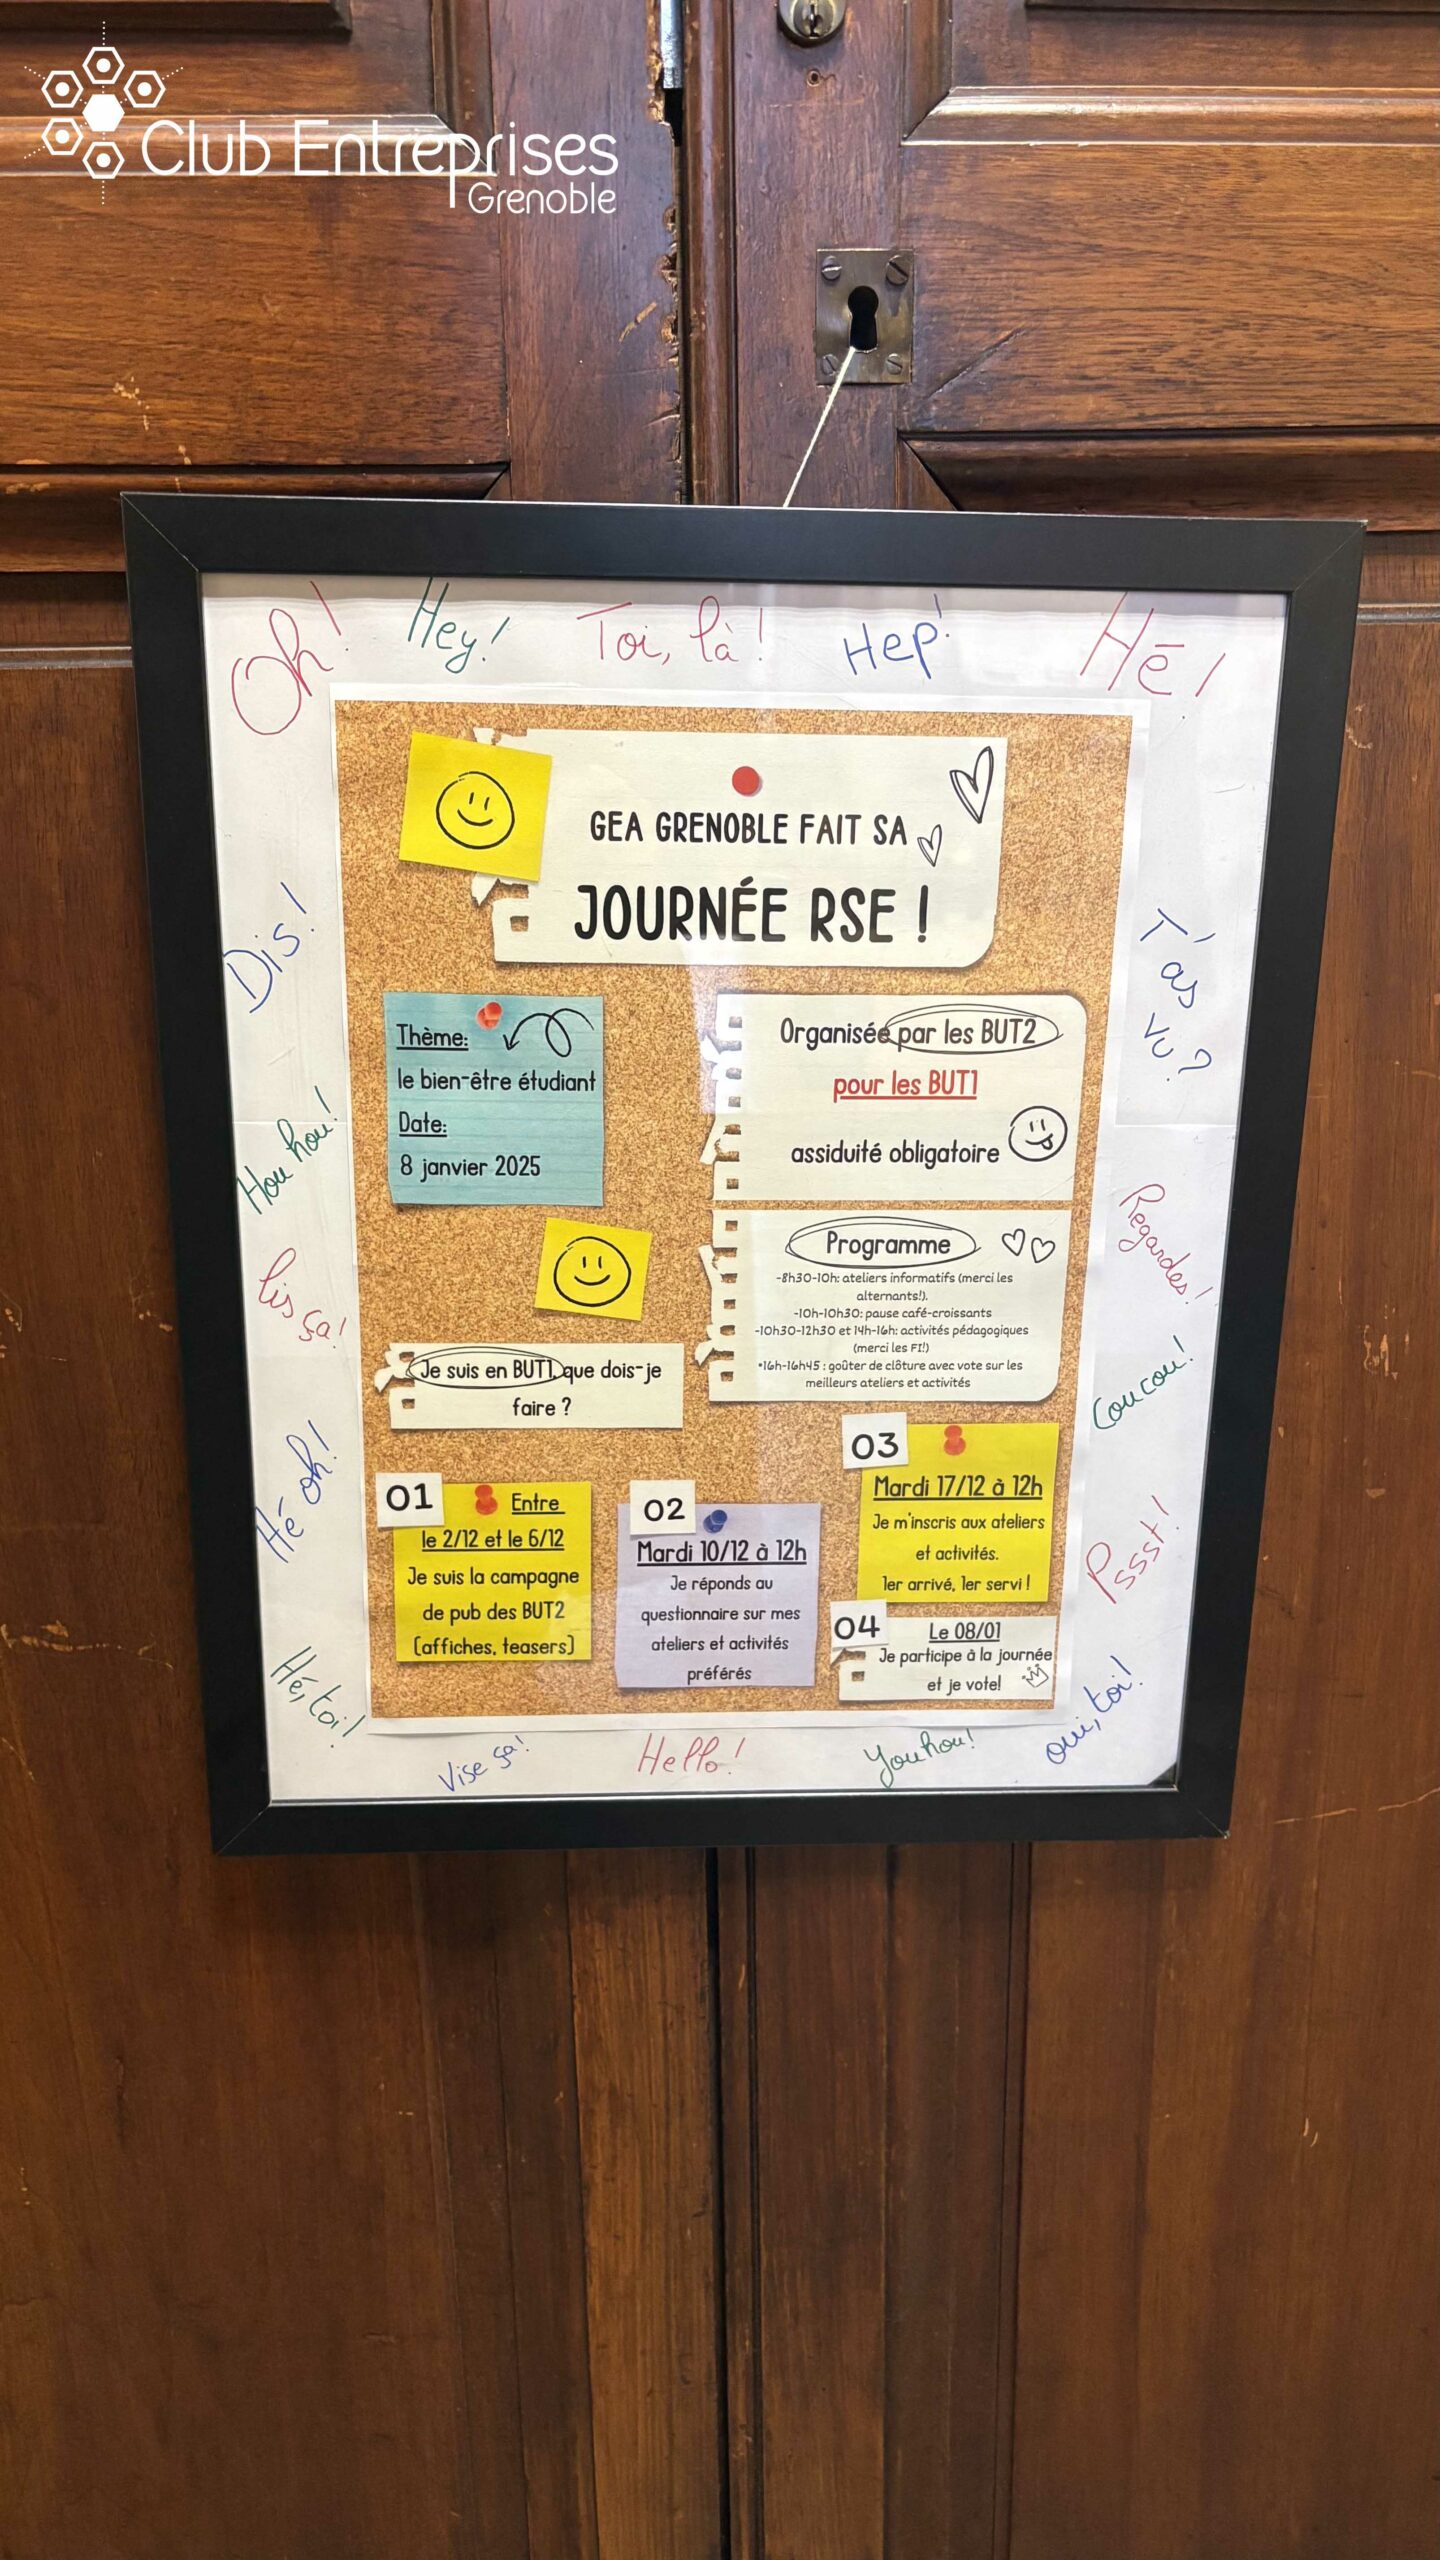 Club Entreprises
Grenoble
Oh!
Hey!
Toi, là!
Hep!
Hé!
GEA GRENOBLE FAIT SA
JOURNÉE RSE !
Dis!
T'as
vu?
Thème:
le bien-être étudiant
Date:
8 janvier 2025
Organisée par les BUT2
pour les BUT1
assiduité obligatoire
Hou hou!
Regardes!
Programme
-8h30-10h: ateliers informatifs (merci les
alternants!).
-10h-10h30: pause café-croissants
-10h30-12h30 et 14h-16h: activités pédagogiques
(merci les FI!)
•16h-16h45 : goûter de clôture avec vote sur les
meilleurs ateliers et activités
lis
ça!
Coucou!
Je suis en BUT1, que dois-je
faire ?
Hé oh!
Pssst!
01
Entre
le 2/12 et le 6/12
Je suis la campagne
de pub des BUT2
(affiches, teasers)
02
Mardi 10/12 à 12h
Je réponds au
questionnaire sur mes
ateliers et activités
préférés
03
Mardi 17/12 à 12h
Je m'inscris aux ateliers
et activités.
1er arrivé, 1er servi !
04
Le 08/01
Je participe à la journée
et je vote!
Hé, toi!
Vise ça!
Hello!
Youhou!
oui, toi!